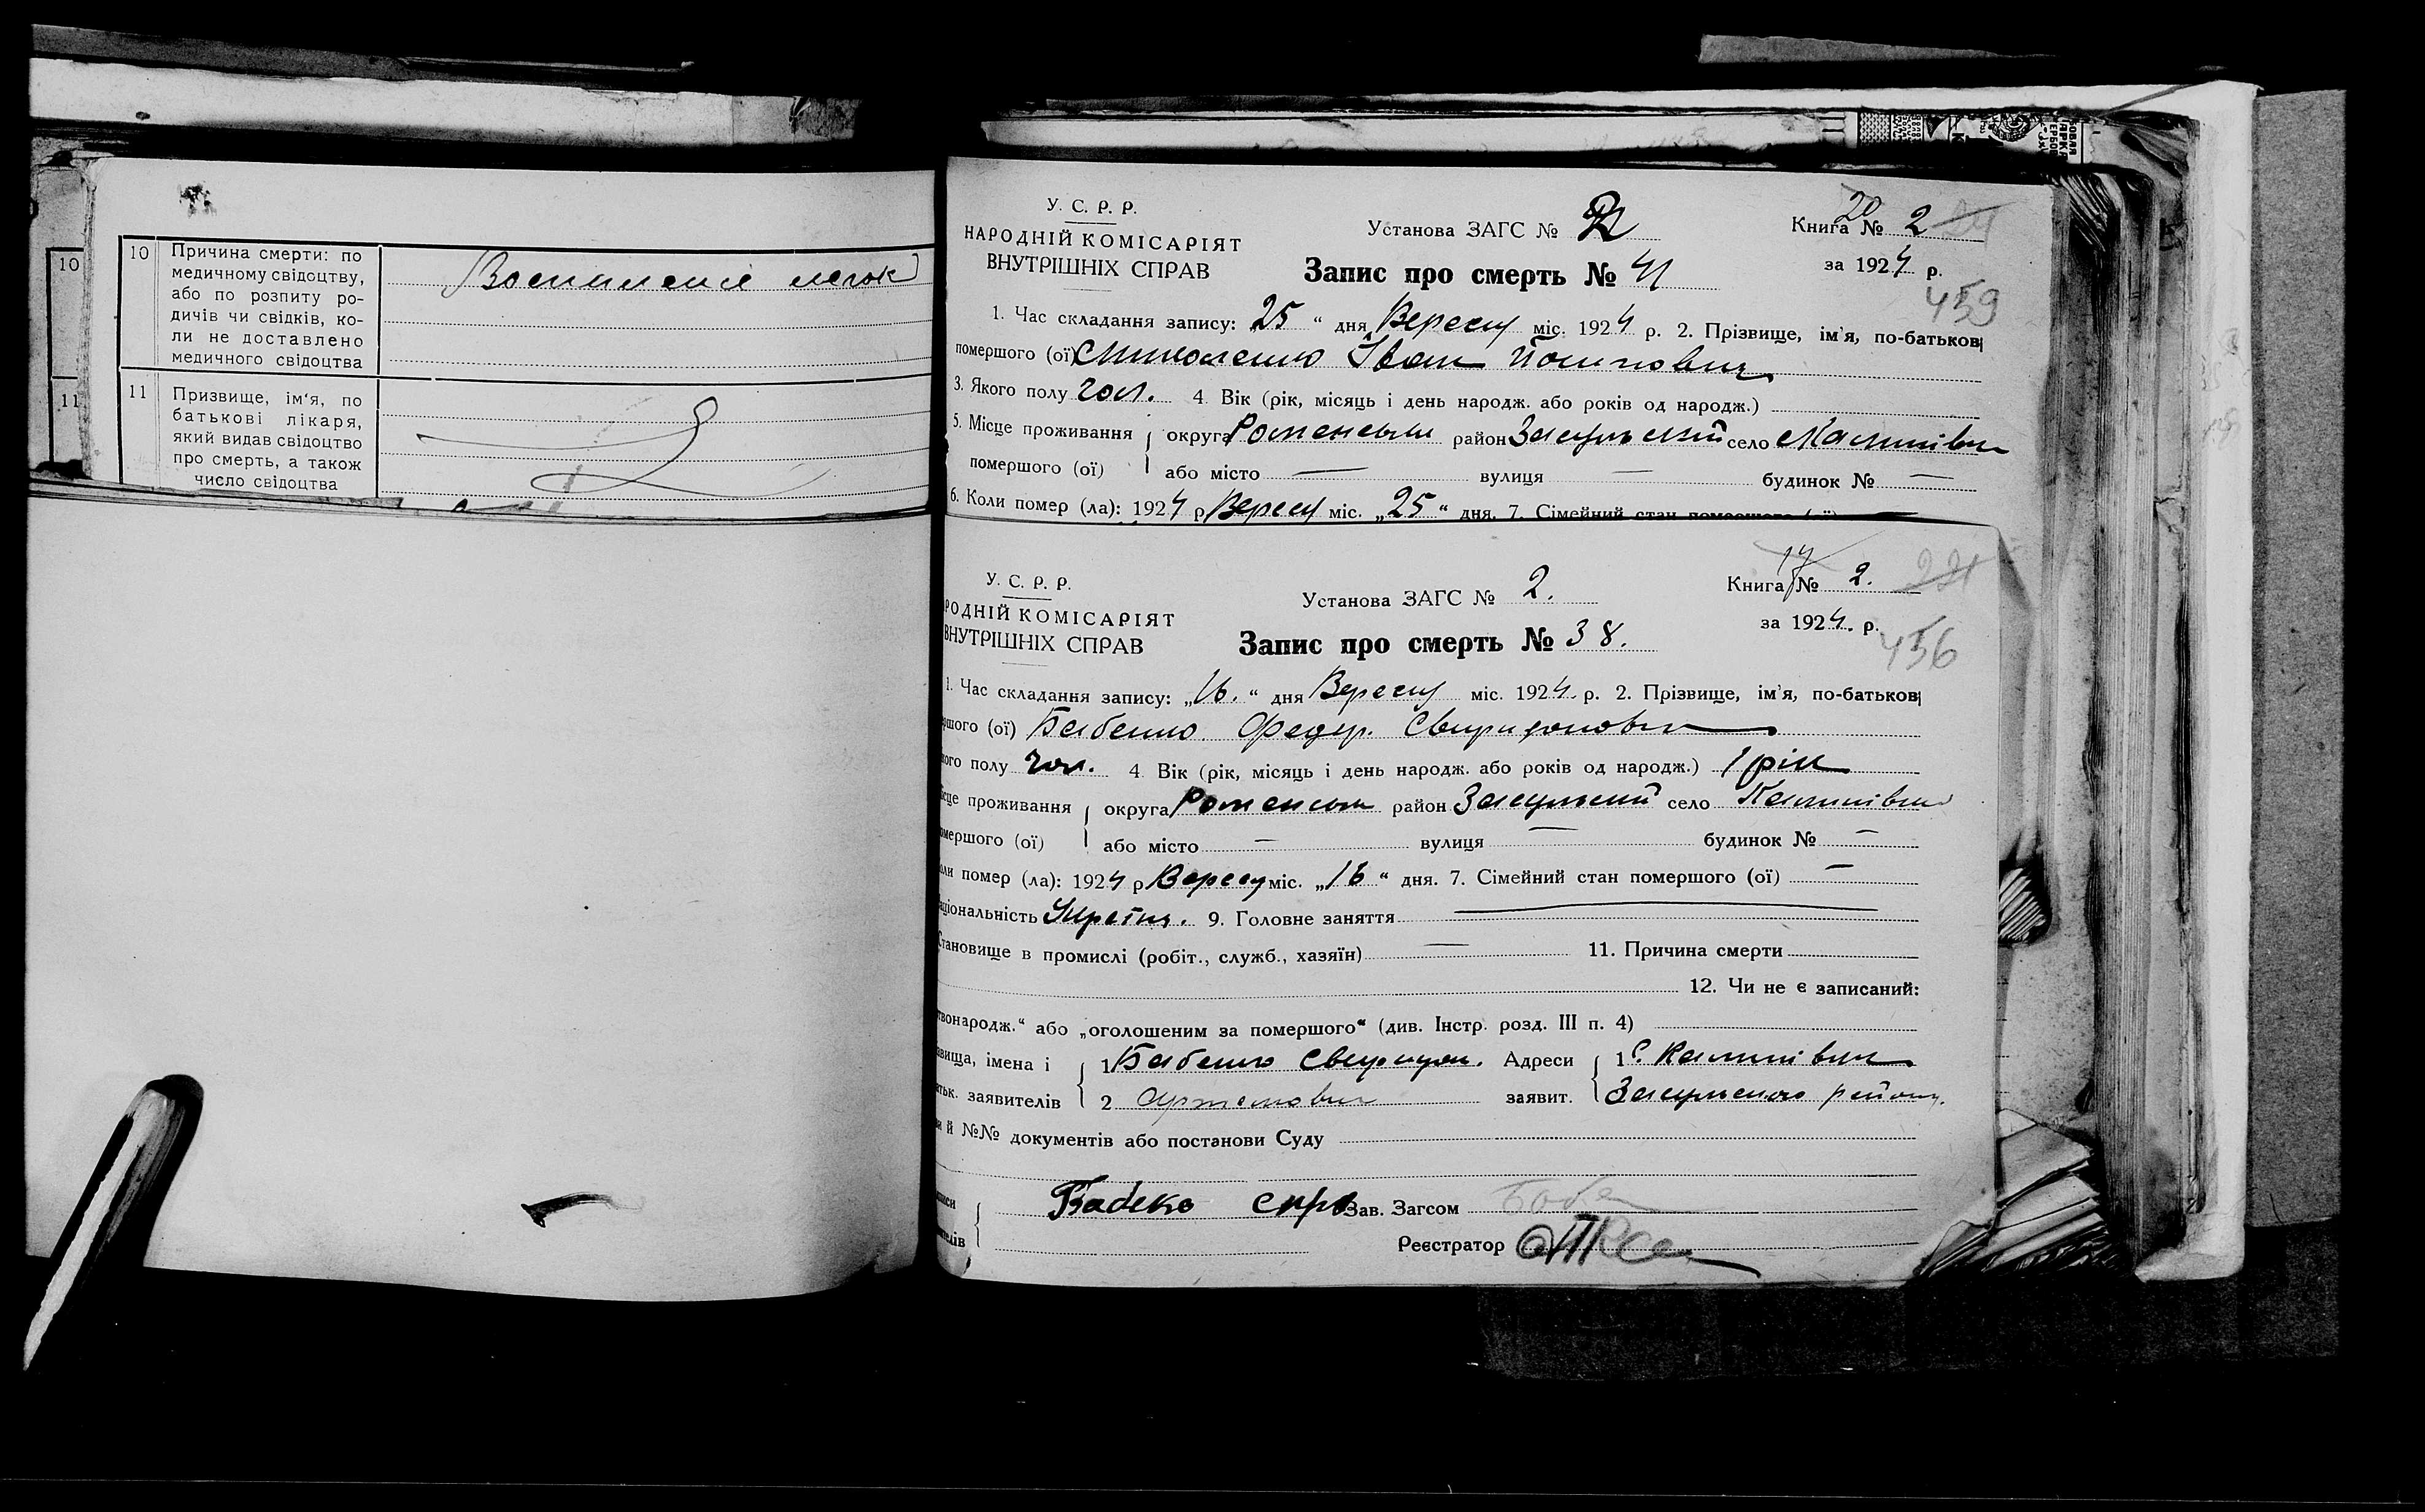 10
11
10 Причина смерти: по
медичному свідоцтву,
або по розпиту ро-
дичів чи свідків, ко-
ли не доставлено
медичного свідоцтва
Воспаление легок
11 Призвище, ім'я, по
батькові лікаря,
який видав свідоцтво
про смерть, а також
число свідоцтва
У. С. Р. Р.
НАРОДНІЙ КОМІСАРІЯТ
ВНУТРІШНІХ СПРАВ
Установа ЗАГС № 2
20
Книга № 2
Запис про смерть № 41
за 1924 р.
459
1. Час складання запису: 25 “ дня Вересня міс. 1924 р. 2. Прізвище, ім'я, по-батькові
помершого (ої) Иван
3. Якого полу чол. 4. Вік (рік, місяць і день народж. або років од народж.)
5. Місце проживання округа Роменськ район Засульский село Калинівка
помершого (ої) або місто — вулиця — будинок № —
6. Коли помер (ла): 1924 р. Вересня міс. „25“ дня. 7. Сімейний стан помершого (ої)
У. С. Р. Р.
РОДНІЙ КОМІСАРІЯТ
ВНУТРІШНІХ СПРАВ
Установа ЗАГС № 2.
17
Книга № 2. 221
Запис про смерть № 38.
за 1924. р.
456
1. Час складання запису: „16.“ дня Вересня міс. 1924. р. 2. Прізвище, ім'я, по-батькові
ршого (ої) Бабенко Федір. Свиридонович
ного полу чол. 4. Вік (рік, місяць і день народж. або років од народж.) 1 рік
сце проживання округа Роменськ район Засульский село Калинівка
омершого (ої) або місто — вулиця — будинок № —
оли помер (ла): 1924 р. Вересня міс. „16“ дня. 7. Сімейний стан помершого (ої) —
аціональність Україн. 9. Головне заняття
Становище в промислі (робіт., служб., хазяїн) — 11. Причина смерти
12. Чи не є записаний:
твонародж.“ або „оголошеним за померлого“ (див. Інстр. розд. III п. 4)
звища, імена і 1 Бабенко Свиридон. Адреси 1 С. Калинівка
атьк. заявителів 2 Артемович заявит. Засульского району.
ви й №№ документів або постанови Суду
Бабеко Зав. Загсом
Реєстратор